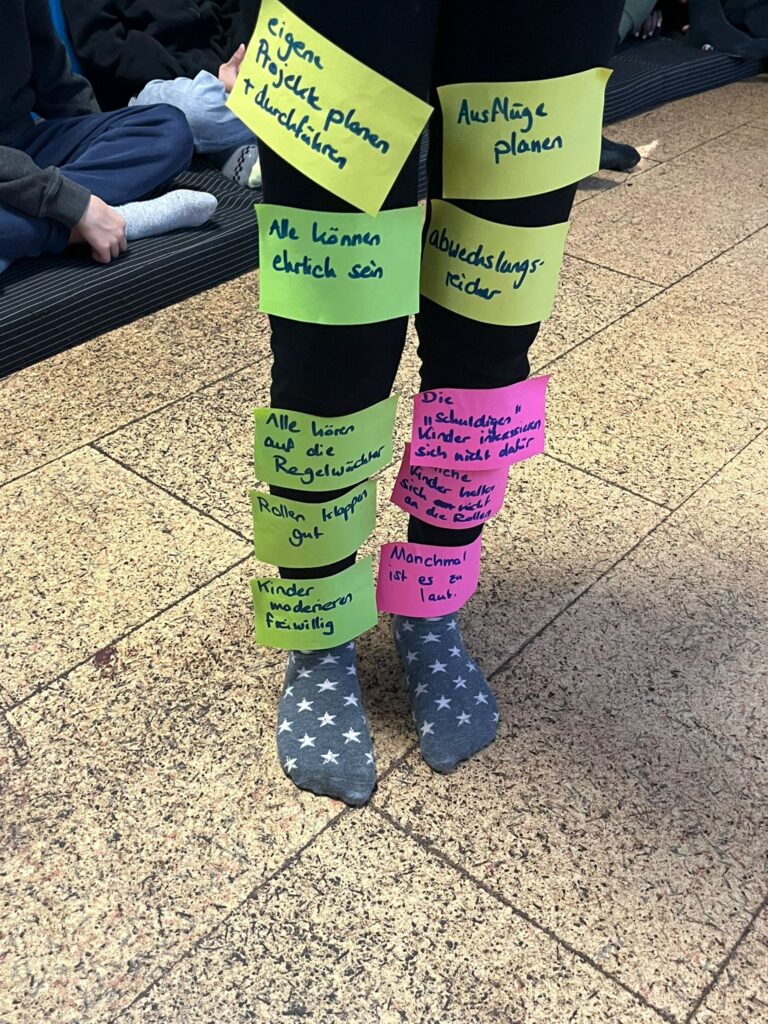 eigene
Projekte planen
+ durchführen
Ausflüge
planen
Alle können
ehrlich sein
abwechslungs-
reicher
Alle hören
auf die
Regelwächter
Rollen klappen
gut
Kinder
moderieren
freiwillig
Die
"schuldigen"
Kinder interessieren
sich nicht dafür
Kinder halten
sich nicht
an die Rollen
Manchmal
ist es zu
laut.